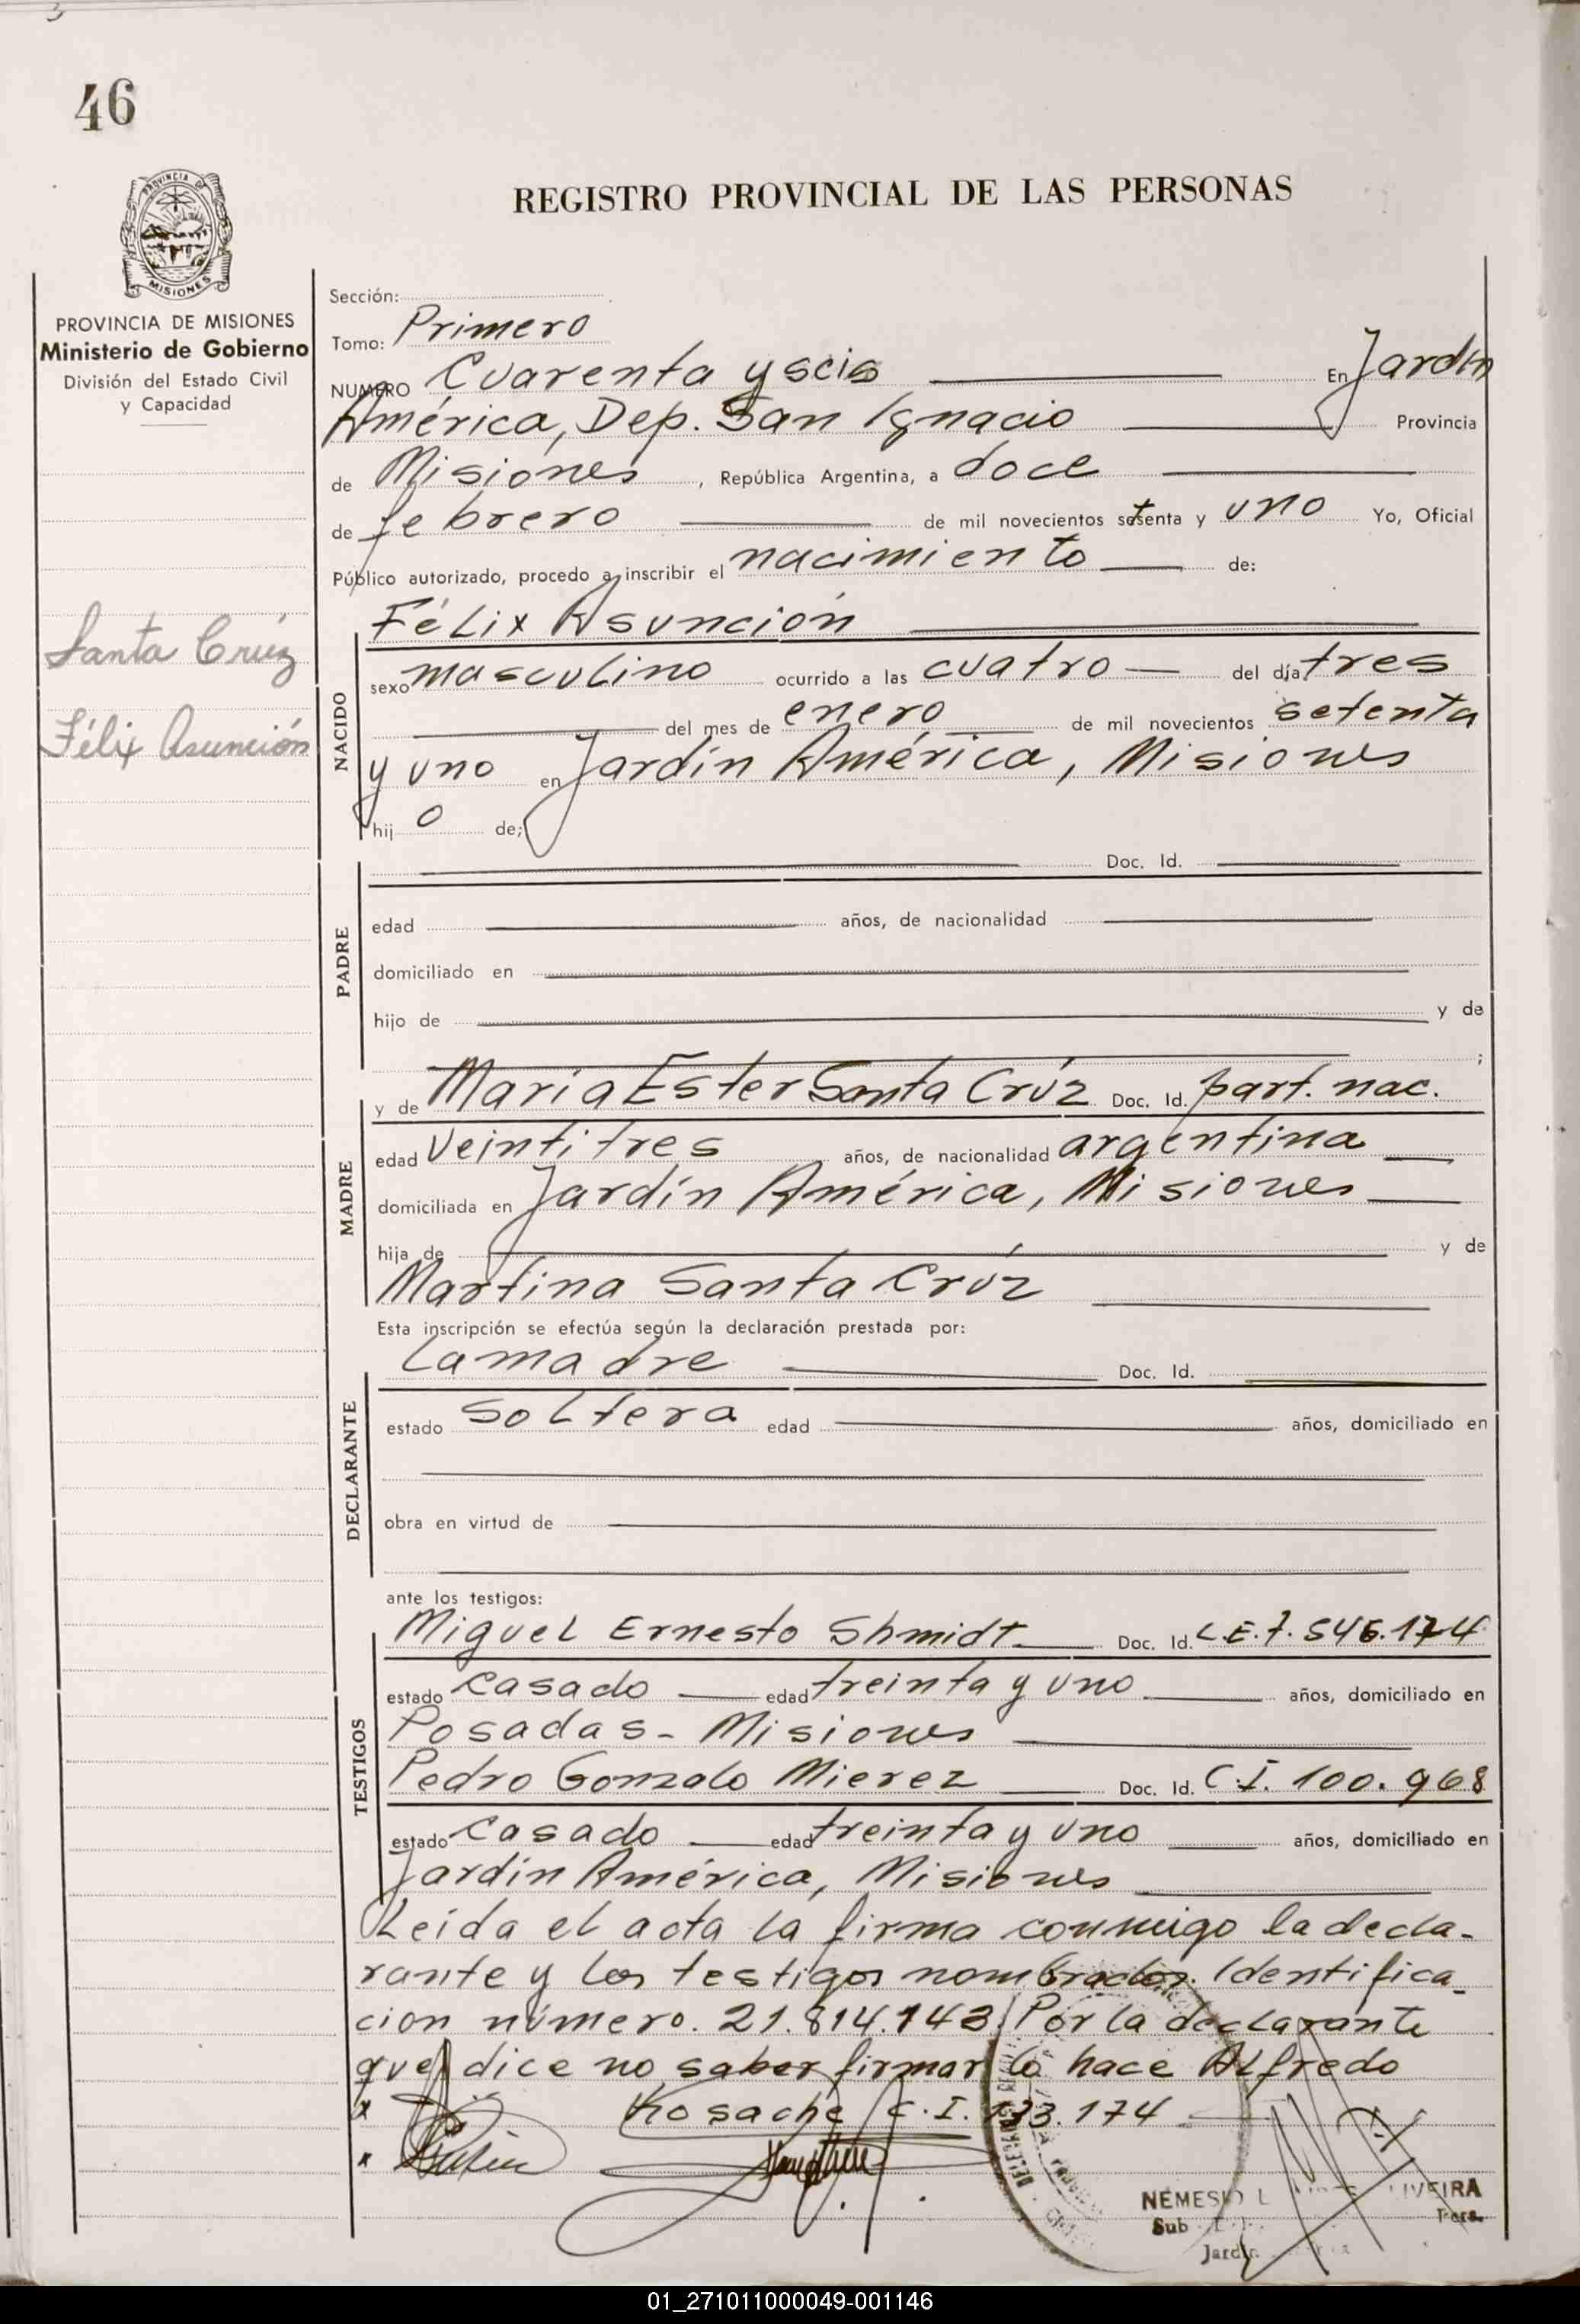 46
PROVINCIA DE
MISIONES
REGISTRO PROVINCIAL DE LAS PERSONAS
PROVINCIA DE MISIONES
Ministerio de Gobierno
División del Estado Civil
y Capacidad
Santa Crúz
Félix Asunción
Sección:
Tomo: Primero
NUMERO Cuarenta y seis En Jardín
América, Dep. San Ignacio Provincia
de Misiones, República Argentina, a doce
de febrero de mil novecientos setenta y uno Yo, Oficial
Público autorizado, procedo a inscribir el nacimiento de:
Félix Asunción
NACIDO
sexo masculino ocurrido a las cuatro del día tres
del mes de enero de mil novecientos setenta
y uno en Jardín América, Misiones
hij o de;
Doc. Id.
PADRE
edad años, de nacionalidad
domiciliado en
hijo de y de
;
y de Maria Ester Santa Crúz Doc. Id. part. nac.
MADRE
edad Veintitres años, de nacionalidad argentina
domiciliada en Jardín América, Misiones
hija de y de
Martina Santa Crúz
Esta inscripción se efectúa según la declaración prestada por:
La madre Doc. Id.
DECLARANTE
estado Soltera edad años, domiciliado en
obra en virtud de
ante los testigos:
Miguel Ernesto Shmidt Doc. Id. L.E. 7.546.174
TESTIGOS
estado Casado edad treinta y uno años, domiciliado en
Posadas - Misiones
Pedro Gonzalo Mierez Doc. Id. C.I. 100.968
estado Casado edad treinta y uno años, domiciliado en
Jardín América, Misiones
Leída el acta la firma conmigo la decla-
rante y los testigos nombrados. Identifica-
cion número. 21.814.143 Por la declarante
que dice no saber firmar lo hace Alfredo
Kosache C.I. 133.174
NEMESIO L
Sub
Jardín
01_271011000049-001146